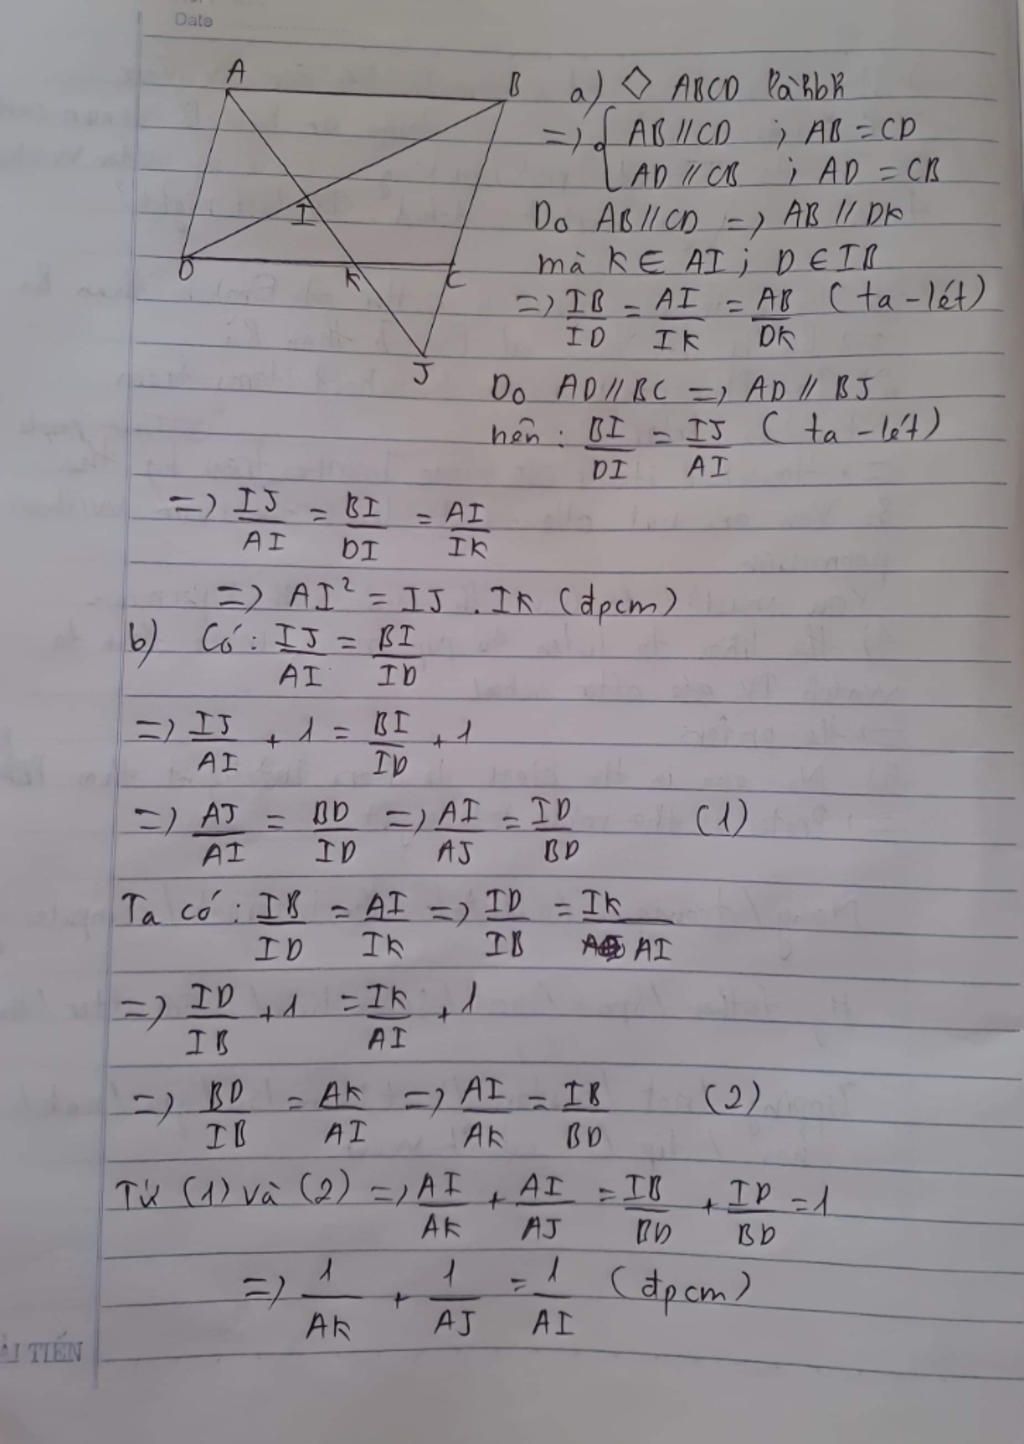 Date
A
B
I
D
K
C
J
a) ◇ ABCD là hbh
=> { AB // CD ; AB = CD
AD // CB ; AD = CB
Do AB // CD => AB // DK
mà K ∈ AI ; D ∈ IB
=> IB/ID = AI/IK = AB/DK (ta-lét)
Do AD // BC => AD // BJ
nên : BI/DI = IJ/AI (ta-lét)
=> IJ/AI = BI/DI = AI/IK
=> AI² = IJ . IK (đpcm)
b) Có : IJ/AI = BI/ID
=> IJ/AI + 1 = BI/ID + 1
=> AJ/AI = BD/ID => AI/AJ = ID/BD (1)
Ta có : IB/ID = AI/IK => ID/IB = IK/AI
=> ID/IB + 1 = IK/AI + 1
=> BD/IB = AK/AI => AI/AK = IB/BD (2)
Từ (1) và (2) => AI/AK + AI/AJ = IB/BD + ID/BD = 1
=> 1/AK + 1/AJ = 1/AI (đpcm)
TIẾN